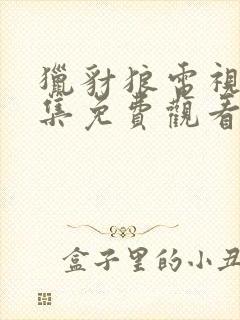 獵豺狼電視
集免費觀看
盒子里的小丑